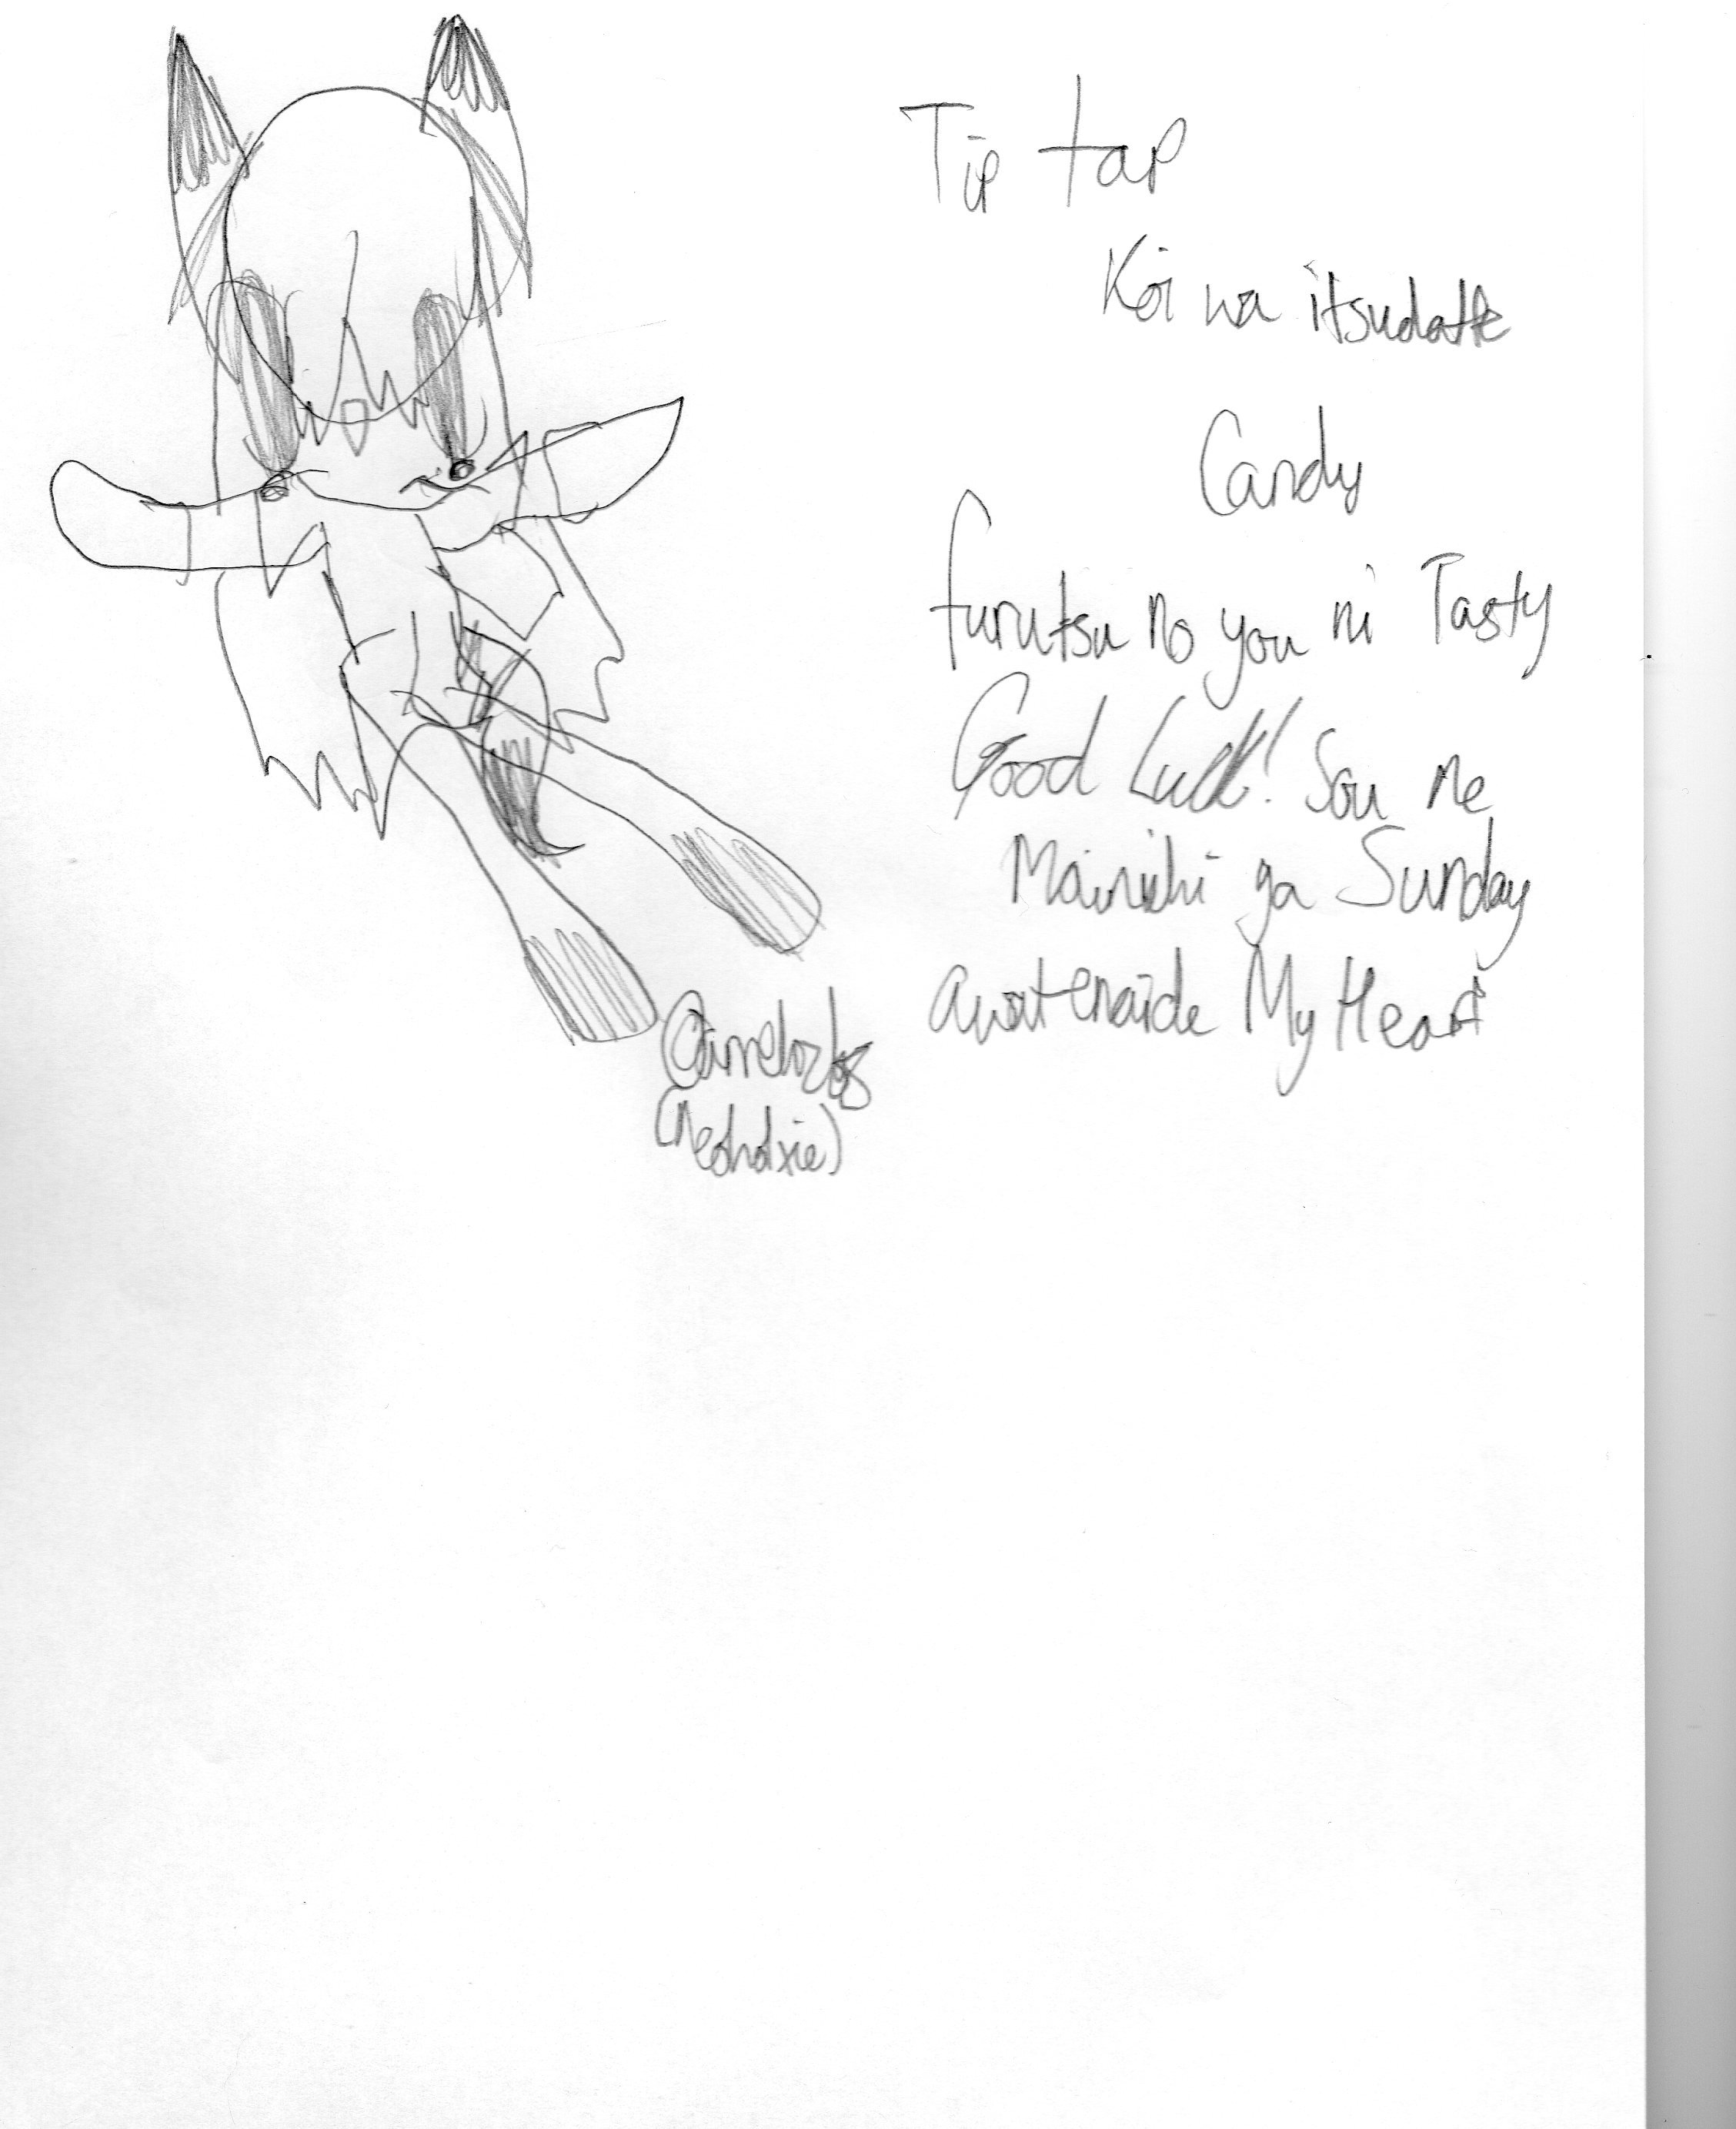 Tip tap
Koi wa itsudatte
Candy
furutsu no you ni Tasty
Good Luck! Sou ne
Mainichi ga Sunday
awatenaide My Heart